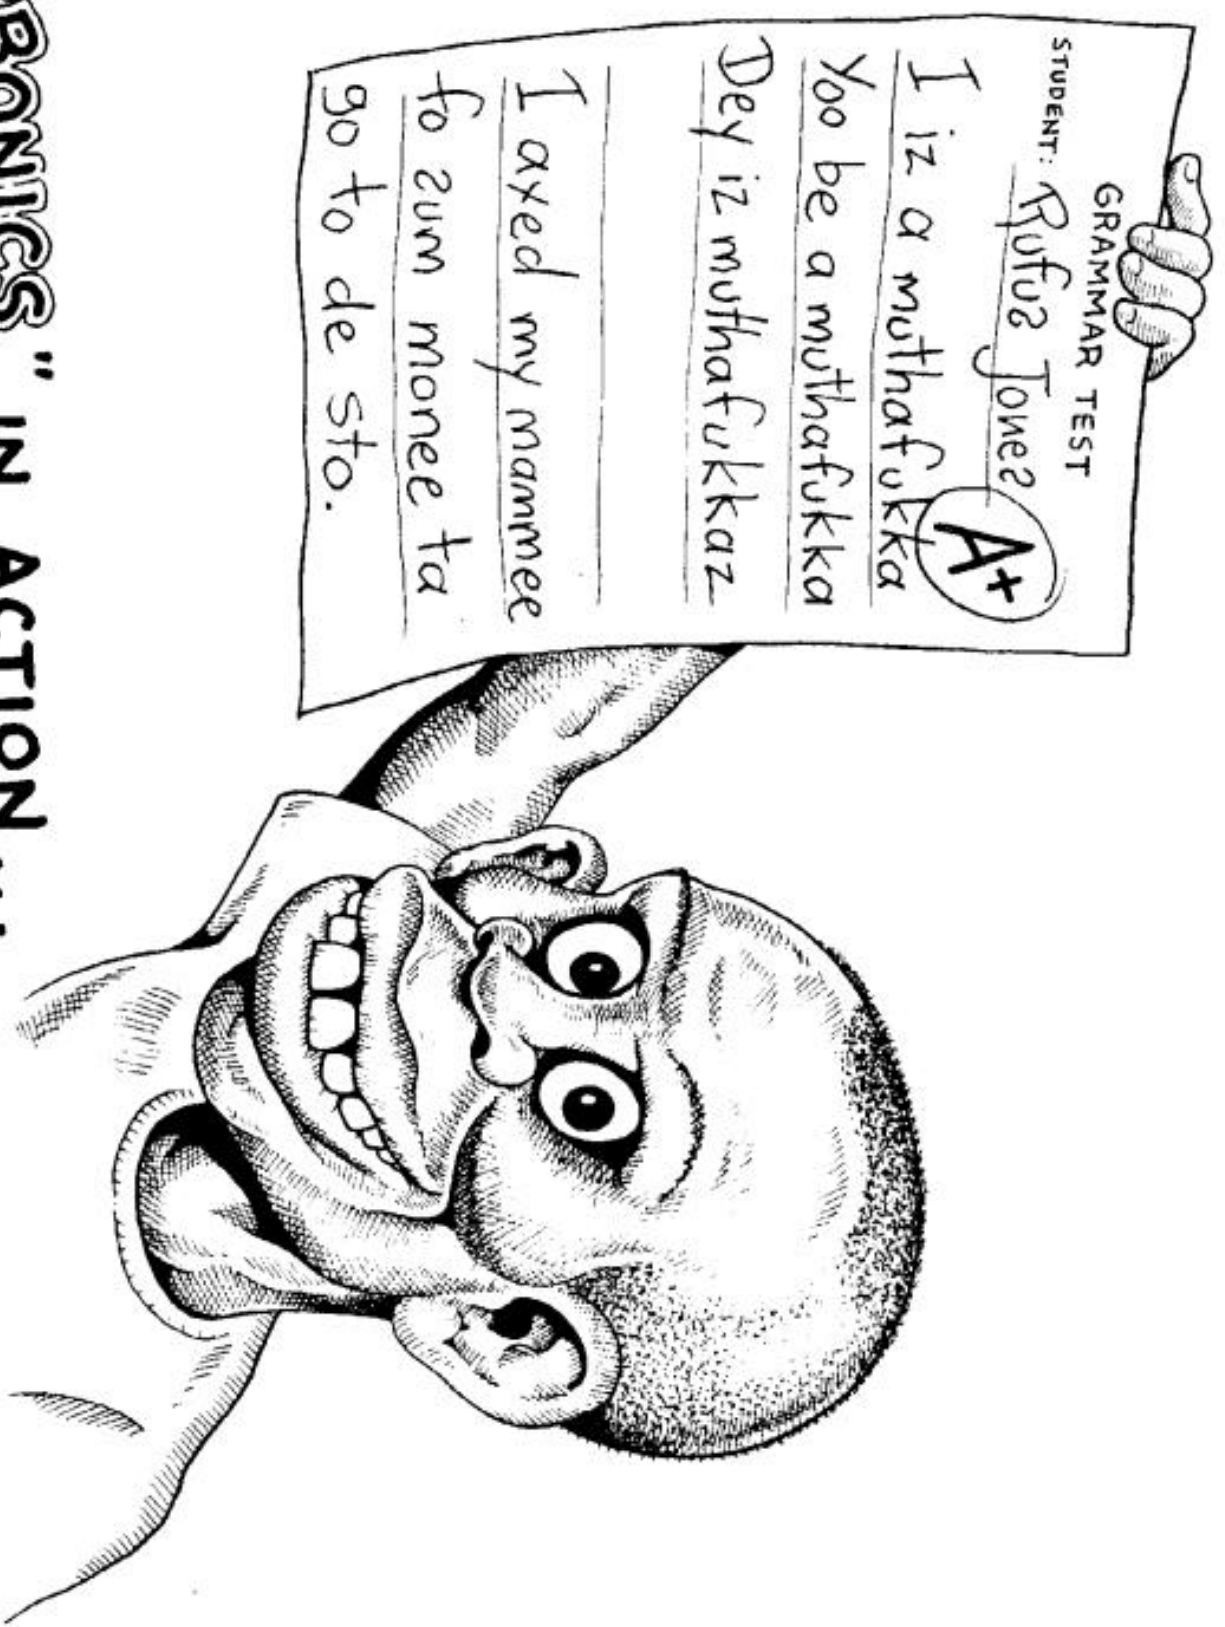 GRAMMAR TEST
STUDENT: Rufus Jones
A+
I iz a muthafukka
Yoo be a muthafukka
Dey iz muthafukkaz
I axed my mammee
fo sum monee ta
go to de sto.
BONICS" IN ACTION